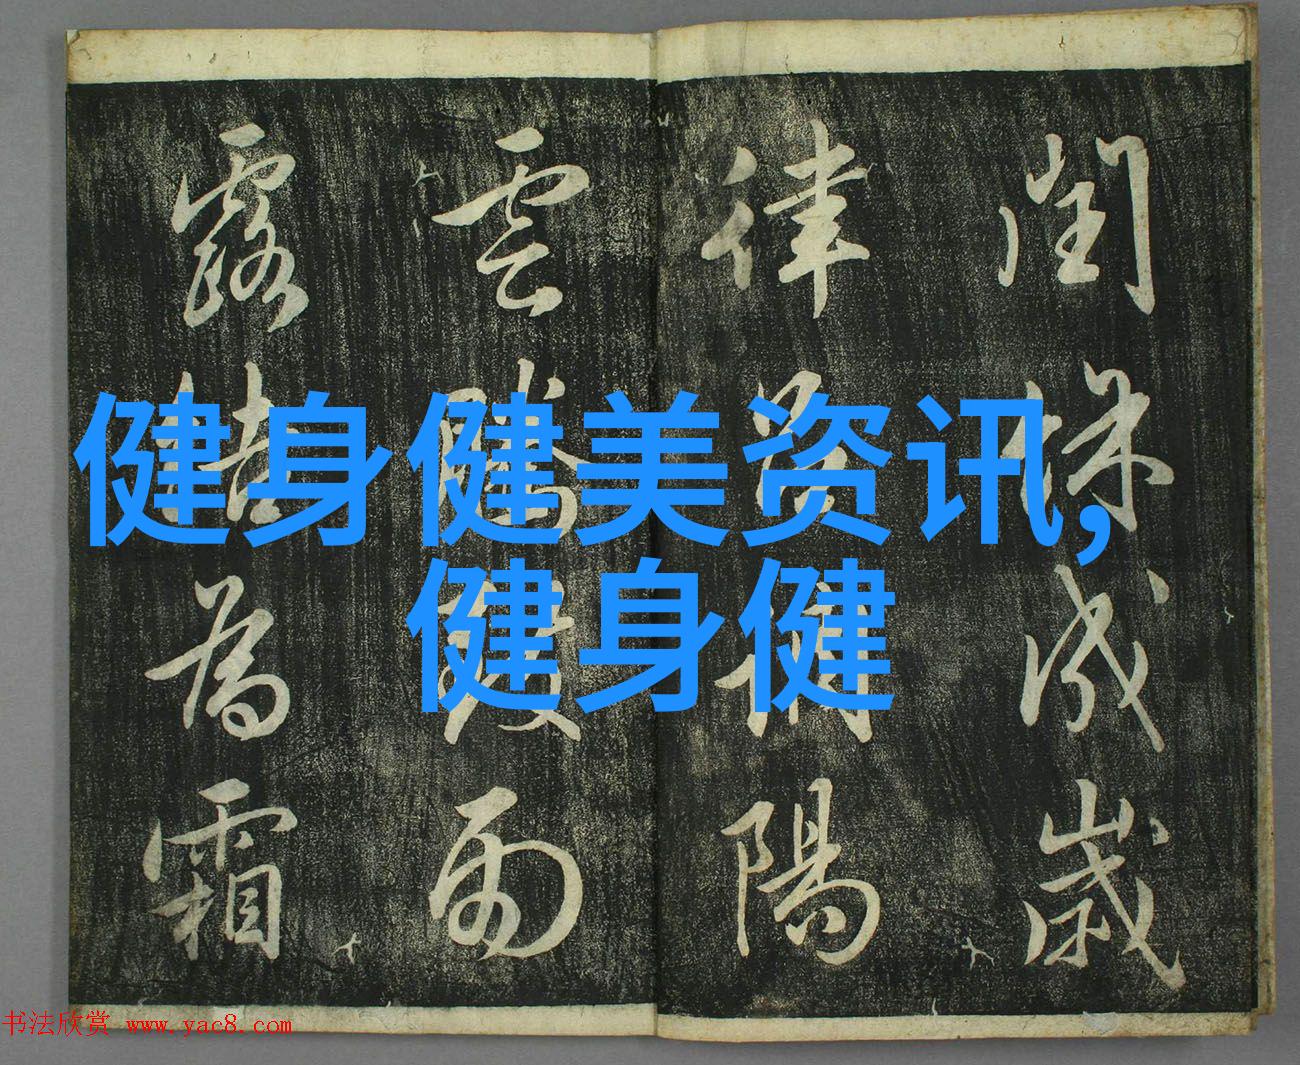 閏餘成歲
律呂調陽
雲騰致雨
露結為霜
健身健美资讯,
健身健
书法欣赏 www.yac8.com